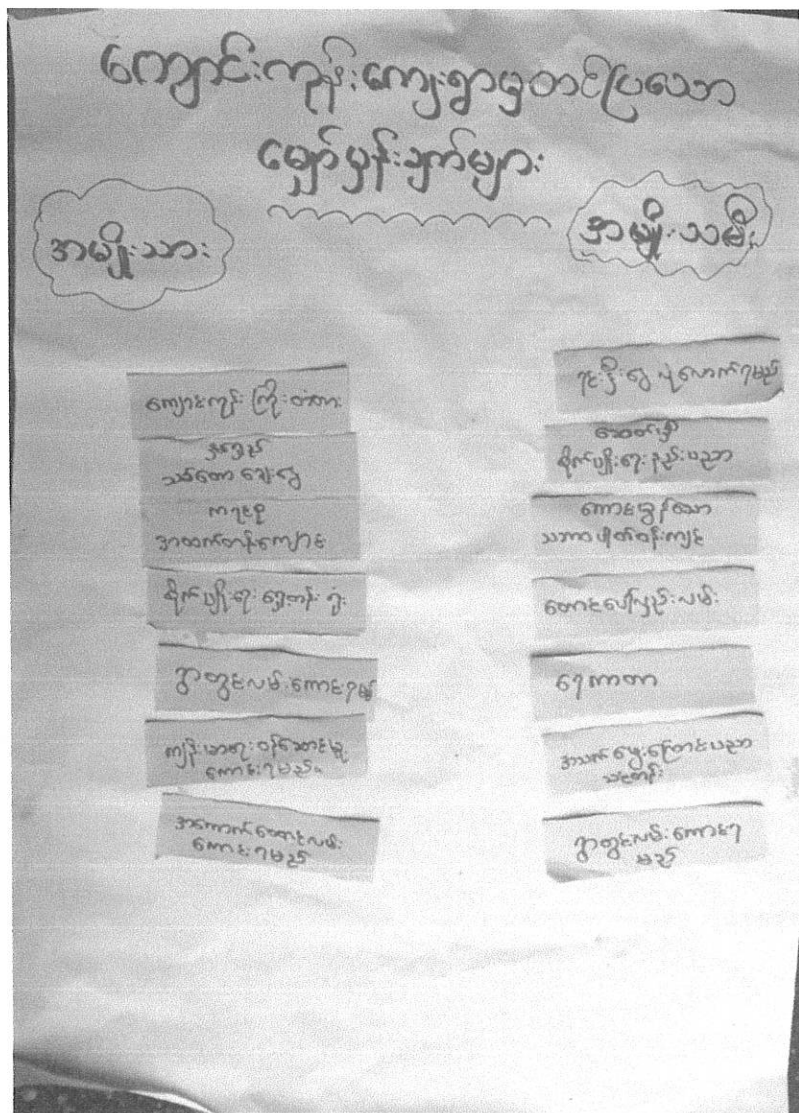 ကျောင်းကုန်းကျေးရွာမှတင်ပြသော
မျှော်မှန်းချက်များ
အမျိုးသား
ကျောင်းကုန်း ကြိုးတံတား
နှစ်ရှည်
သစ်တော ချေးငွေ
ကရင်စု
အထက်တန်းကျောင်း
စိုက်ပျိုးရေး ရှေ့တန်း ရုံး
ရွာတွင်းလမ်းကောင်းရမည်
ကျန်းမာရေး ဝန်ဆောင်မှု
ကောင်းရမည်။
အကောက်တောင်လမ်း
ကောင်းရမည်
အမျိုးသမီး
ရင်းနှီးငွေ လုံလောက်ရမည်
ခေတ်မှီ
စိုက်ပျိုးရေးနည်းပညာ
ကောင်းမွန်သော
သဘာဝပတ်ဝန်းကျင်
တောင်ပေါ်လှည်းလမ်း
ရေကာတာ
အသက်မွေးကြောင်းပညာ
သင်တန်း
ရွာတွင်းလမ်းကောင်းရ
မည်